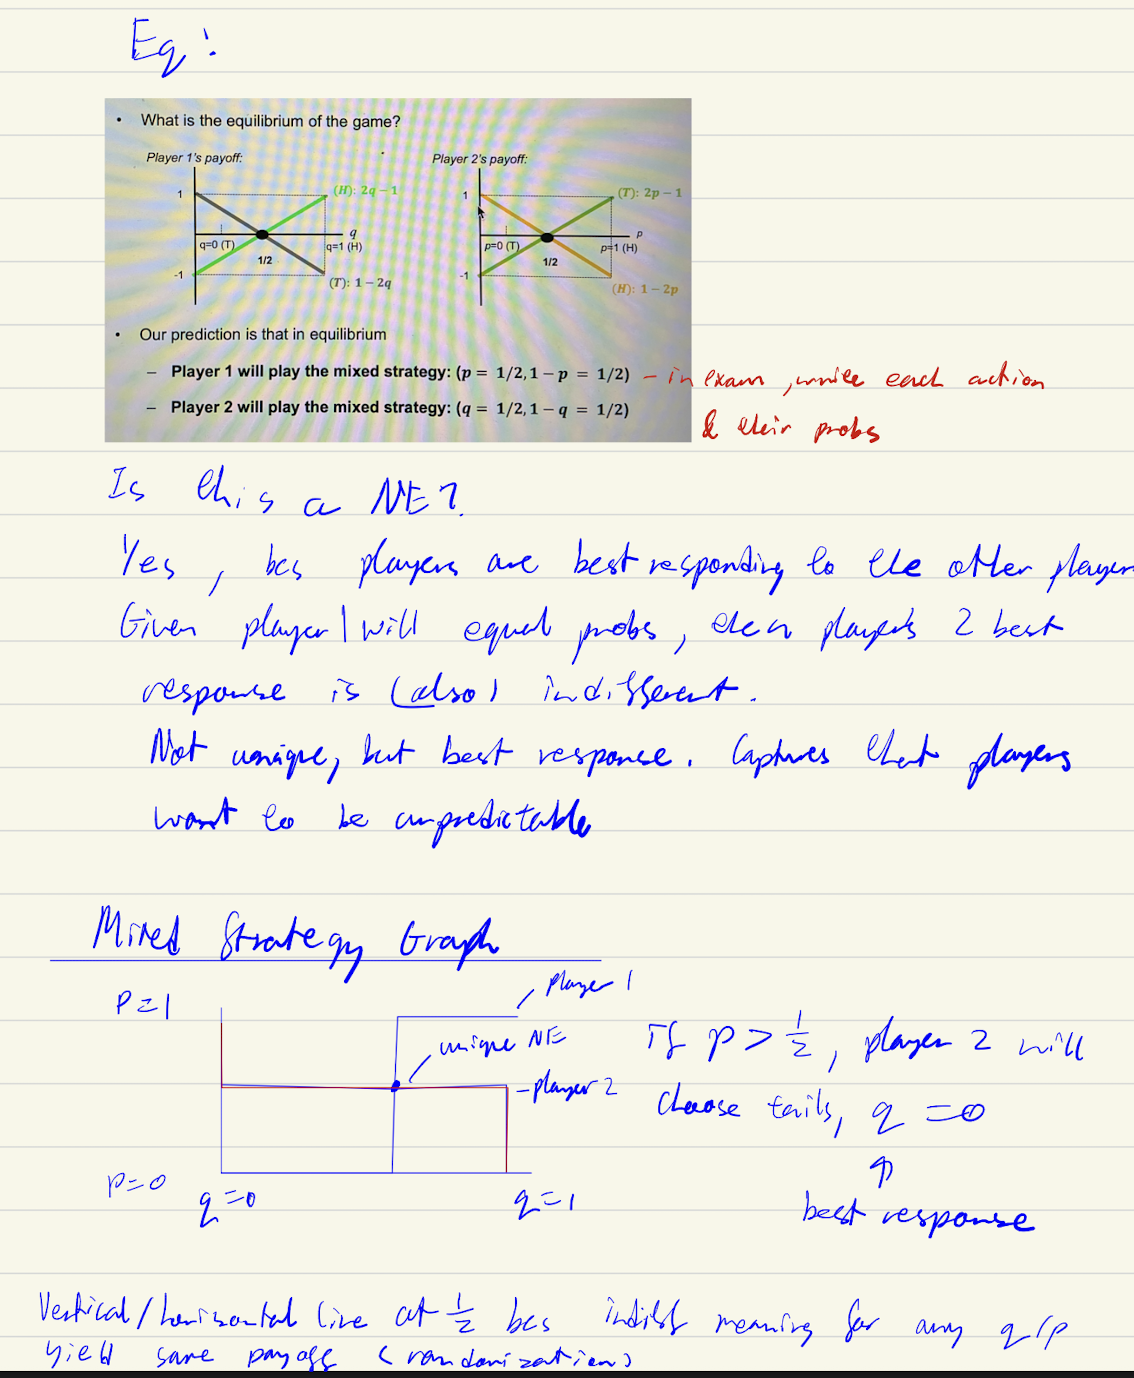 Eq:
• What is the equilibrium of the game?
Player 1's payoff: Player 2's payoff:
1 (H): 2q − 1 1 (T): 2p − 1
q p
q=0 (T) q=1 (H) p=0 (T) p=1 (H)
1/2 1/2
-1 (T): 1 − 2q -1 (H): 1 − 2p
• Our prediction is that in equilibrium
– Player 1 will play the mixed strategy: (p = 1/2, 1 − p = 1/2) - in exam, write each action
– Player 2 will play the mixed strategy: (q = 1/2, 1 − q = 1/2)
& their probs
Is this a NE?
Yes, bcs players are best responding to the other player
Given player 1 will equal probs, then player's 2 best
response is (also) indifferent.
Not unique, but best response. Captures that players
want to be unpredictable
Mixed Strategy Graph
P=1 player 1
unique NE If p > 1/2, player 2 will
- player 2 choose tails, q = 0
P=0 ↑
q=0 q=1 best response
Vertical/horizontal line at 1/2 bcs indiff meaning for any q/p
yield same payoff (randomization)